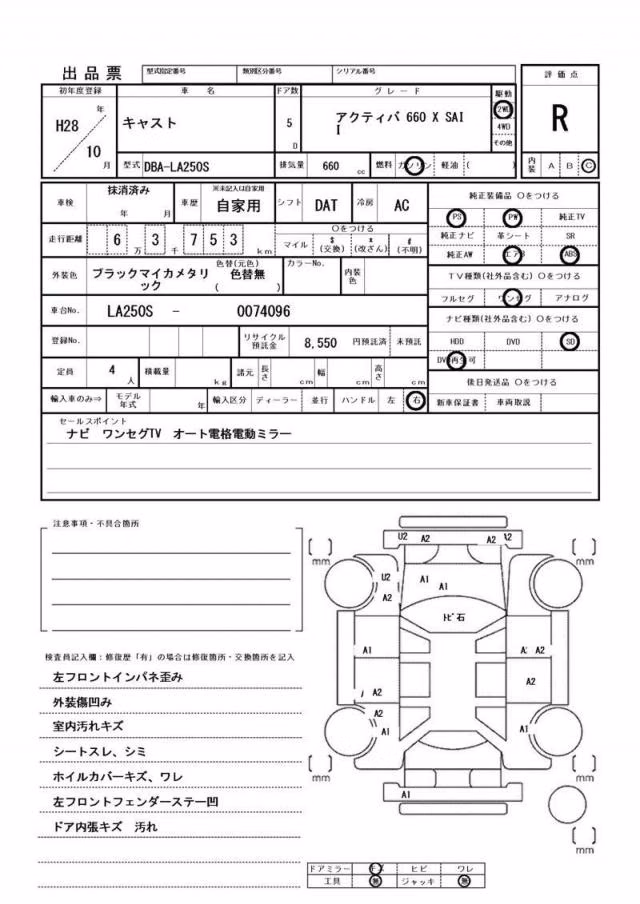 出品票 型式指定番号 類別区分番号 シリアル番号
評価点
R
内装 A B C
初年度登録 車名 ドア数 グレード 駆動
H28 年 10 月
キャスト
5 D
アクティバ 660 X SAI
I
2WD
4WD
その他
型式 DBA-LA250S 排気量 660 cc 燃料 ガソリン 軽油 ( )
車検 抹消済み 年 月 車歴 ※未記入は自家用 自家用 シフト DAT 冷房 AC
走行距離 6 万 3 千 7 5 3 km
○をつける
マイル $(交換) x(改ざん) #(不明)
外装色 ブラックマイカメタリ
ック
色替(元色)
色替無
( )
カラーNo. 内装色
車台No. LA250S - 0074096
登録No. リサイクル預託金 8,550 円預託済 未預託
定員 4 人 積載量 kg 諸元 長さ cm 幅 cm 高さ cm
輸入車のみ⇒ モデル年式 年 輸入区分 ディーラー 並行 ハンドル 左 右
純正装備品 ○をつける
PS PW 純正TV
純正ナビ 革シート SR
純正AW エアB ABS
TV種類(社外品含む) ○をつける
フルセグ ワンセグ アナログ
ナビ種類(社外品含む) ○をつける
HDD DVD SD
DVD再生可
後日発送品 ○をつける
新車保証書 車両取説
セールスポイント
ナビ ワンセグTV オート電格電動ミラー
注意事項・不具合箇所
検査員記入欄：修復歴「有」の場合は修復箇所・交換箇所を記入
左フロントインパネ歪み
外装傷凹み
室内汚れキズ
シートスレ、シミ
ホイルカバーキズ、ワレ
左フロントフェンダーステー凹
ドア内張キズ 汚れ
U2 A2 A2 A2
mm mm
U2 A1
A2 A1
トビ石
A1 A2
A2 A2
A2
A1 A1
mm mm
A1
mm
ドアミラー キズ ヒビ ワレ
工具 無 ジャッキ 無